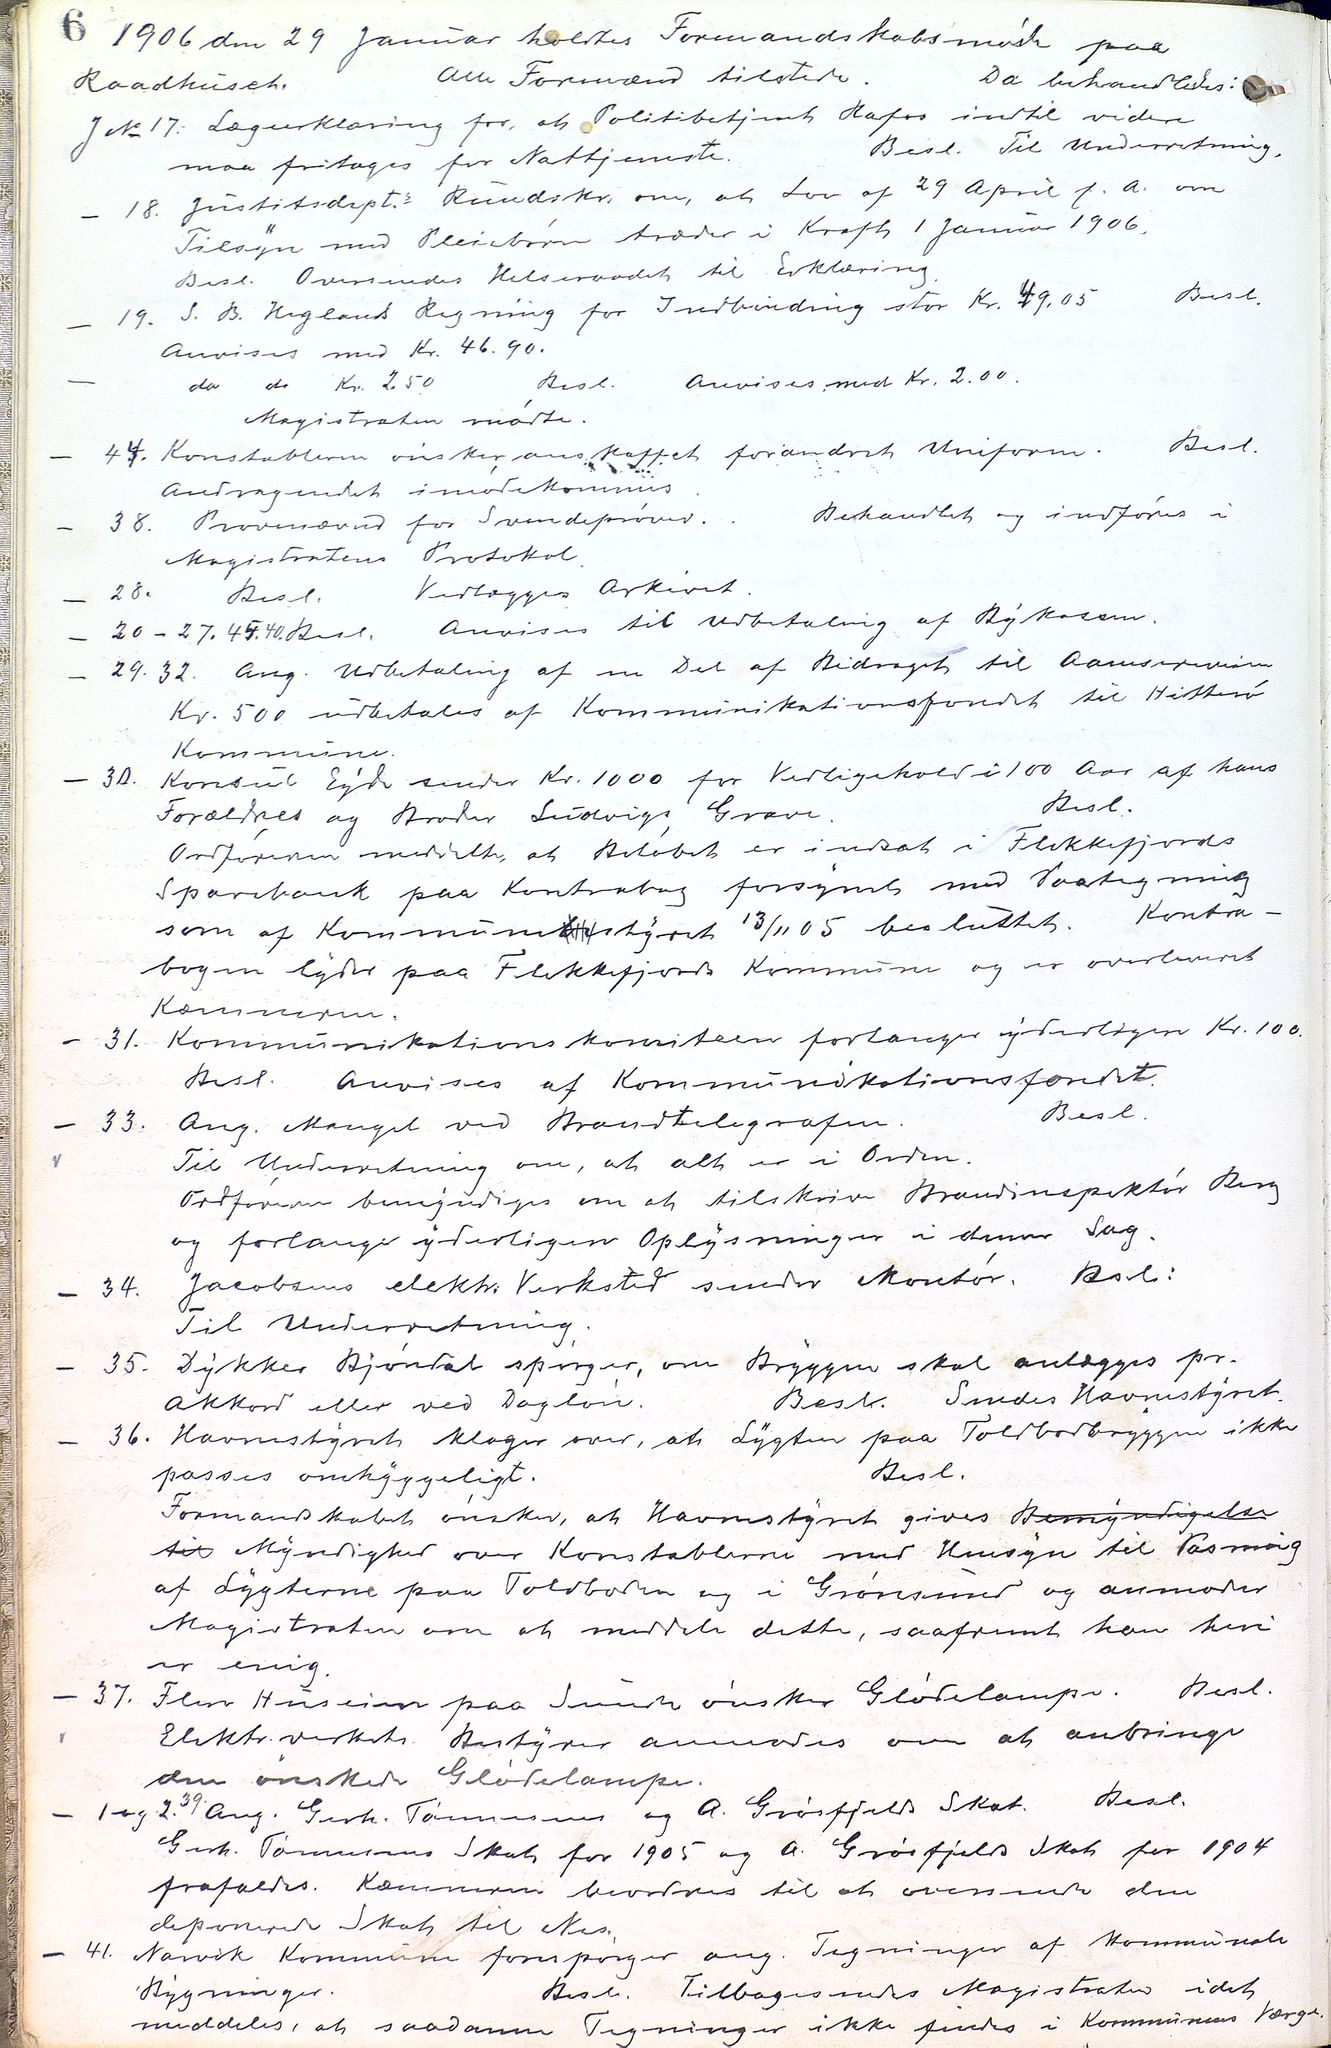 6
1906 den 29 Januar holdtes Formandskabsmøde paa
Raadhuset. Alle Formænd tilstede. Da behandledes:
J № 17: Lægeerklæring for, at Politibetjent Hafso indtil videre
maa fritages for Nattjeneste. Besl. Til Underretning.
— 18. Justitsdept.s Rundskr. om, at Lov af 29 April f. A. om
Tilsyn med Pleiebørn træder i Kraft 1 Januar 1906.
Besl. Oversendes Helseraadet til Erklæring.
— 19. S. B. Heglands Regning for Indbinding stor Kr. 49,05 Besl.
Anvises med Kr. 46.90.
— do do Kr. 2.50 Besl. Anvises med Kr. 2.00.
Magistraten mødte.
— 44. Konstablerne ønsker anskaffet forandret Uniform. Besl.
Andragendet imødekommes.
— 38. Prøvenævnd for Svendeprøver. Behandlet og indføres i
Magistratens Protokol.
— 28. Besl. Vedlægges Arkivet.
— 20 - 27. 45. 40. Besl. Anvises til Udbetaling af Bykassen.
— 29. 32. Ang. Udbetaling af en Del af Bidraget til
Kr. 500 udbetales af Kommunikationsfondet til Hitterø
Kommune.
— 30. Konsul Eyde sender Kr. 1000 for Vedligehold i 100 Aar af hans
Forældres og Broder Ludvigs Grave. Besl.
Ordføreren meddelte, at Beløbet er indsat i Flekkefjords
Sparebank paa Kontrabog forsynet med Paategning
som af Kommunestyret 13/11 05 besluttet. Kontra-
bogen lyder paa Flekkefjords Kommune og er overleveret
Kæmneren.
— 31. Kommunikationskomiteen forlanger yderligere Kr. 100.
Besl. Anvises af Kommunikationsfondet.
— 33. Ang. Mangel ved Brandtelegrafen. Besl.
Til Underretning om, at alt er i Orden.
Ordføreren bemyndiges om at tilskrive Brandinspektør Berg
og forlange yderligere Oplysninger i denne Sag.
— 34. Jacobsens elektr. Verksted sender Montør. Besl:
Til Underretning.
— 35. Dykker Bjørndal spørger, om Bryggen skal anlægges pr.
Akkord eller ved Dagløn. Besl. Sendes Havnestyret.
— 36. Havnestyret klager over, at Lygten paa Toldbodbryggen ikke
passes omhyggeligt. Besl.
Formandskabet ønsker, at Havnestyret gives Bemyndigelse
til Myndighed over Konstablerne med Hensyn til Pasning
af Lygterne paa Toldboden og i Grønsund og anmoder
Magistraten om at meddele dette, saafremt han heri
er enig.
— 37. Flere Huseiere paa Sunde ønsker Glødelampe. Besl.
Elektr. verkets Bestyrer anmodes om at anbringe
den ønskede Glødelampe.
— 1 og 2. 39. Ang. Gerh. Tønnesens og A. Grøsfjelds Skat. Besl.
Gerh. Tønnesens Skat for 1905 og A. Grøsfjelds Skat for 1904
frafaldes. Kæmneren beordres til at oversende den
deponerede Skat til Nes.
— 41. Narvik Kommune forespørger ang. Tegninger af Kommunale
Bygninger. Besl. Tilbagesendes Magistraten idet
meddeles, at saadanne Tegninger ikke findes i Kommunens Værge.